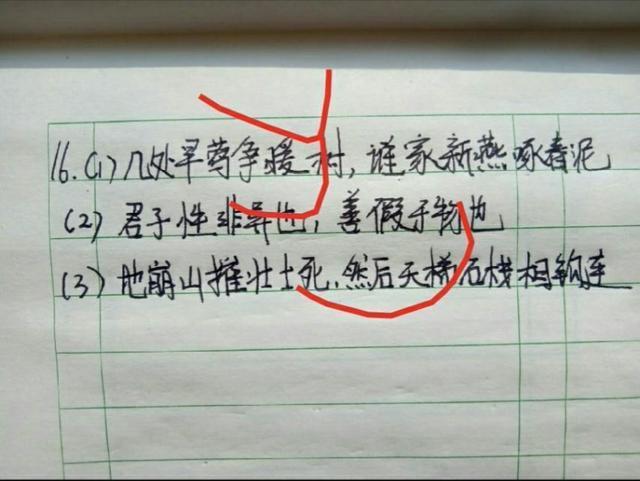 16.(1)几处早莺争暖树,谁家新燕啄春泥
(2)君子性非异也,善假于物也
(3)地崩山摧壮士死,然后天梯石栈相钩连